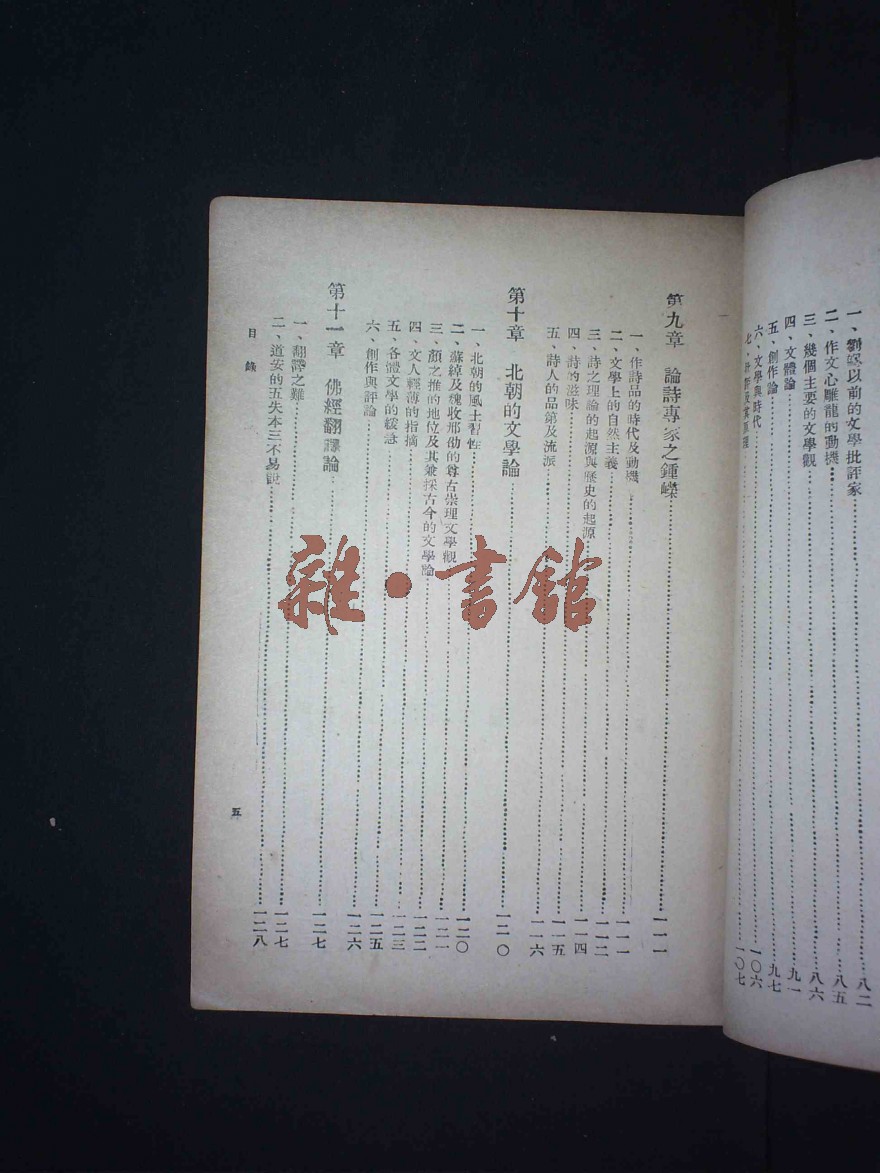 一、劉勰以前的文學批評家……八二
二、作文心雕龍的動機……八五
三、幾個主要的文學觀……八六
四、文體論……九一
五、創作論……九七
六、文學與時代……一〇六
七、……一〇七
第九章 論詩專家之鍾嶸……一一一
一、作詩品的時代及動機……一一一
二、文學上的自然主義……一一二
三、詩之理論的起源與歷史的起源……一一四
四、詩的滋味……一一五
五、詩人的品第及流派……一一六
第十章 北朝的文學論……一二〇
一、北朝的風土習性……一二〇
二、蘇綽及魏收邢劭的尊古崇理文學觀……一二一
三、顏之推的地位及其兼採古今的文學論……一二二
四、文人輕薄的指摘……一二三
五、各體文學的……一二五
六、創作與評論……一二六
第十一章 佛經翻譯論……一二七
一、翻譯之難……一二七
二、道安的五失本三不易說……一二八
目錄
五
雜·書館